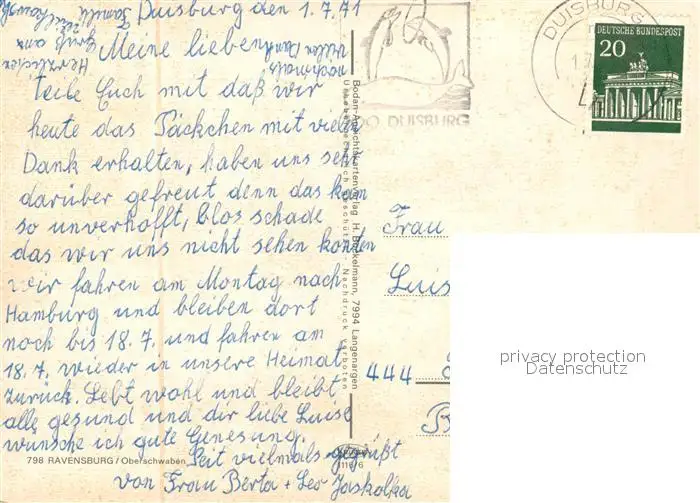 Duisburg den 1.7.71
Meine lieben
teile Euch mit daß wir
heute das Päckchen mit vielen
Dank erhalten, haben uns sehr
darüber gefreut denn das kam
so unverhofft, blos schade
das wir uns nicht sehen konten
wir fahren am Montag nach
Hamburg und bleiben dort
noch bis 18.7. und fahren am
18.7. wieder in unsere Heimat
zurück. Lebt wohl und bleibt
alle gesund und dir liebe Luise
wünsche ich gute Genesung.
Seit vielmals gegrüßt
von Frau Berta + Leo Jaskolka
Herzlicher
Gruß an
Familie
nochmals
vielen Dank
798 RAVENSBURG/Oberschwaben
Bodan-Ansichtskartenverlag H. Bockelmann, 7994 Langenargen
Urheberrechtlich geschützt - Nachdruck verboten
1116/6
ZOO DUISBURG
DUISBURG
DEUTSCHE BUNDESPOST
20
Frau
Luis
444
B
privacy protection
Datenschutz